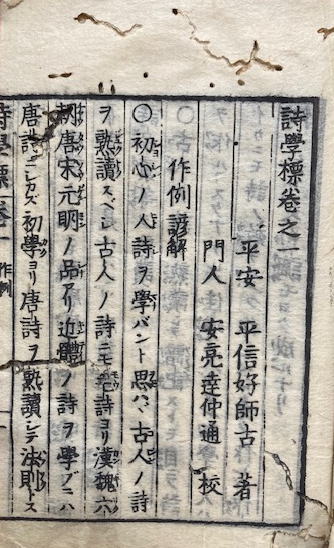 詩學標卷之一
平安 平信好師古 著
門人 安亮達仲通 校
作例諺解
○初心ノ人詩ヲ學バント思ハヾ古人ノ詩
ヲ熟讀スベシ古人ノ詩ニモ毛詩ヨリ漢魏六
朝唐宋元明ノ品アリ近體ノ詩ヲ學ブニハ
唐詩ニシカズ初學ヨリ唐詩ヲ熟讀シテ法則トス
詩學標卷一 作例